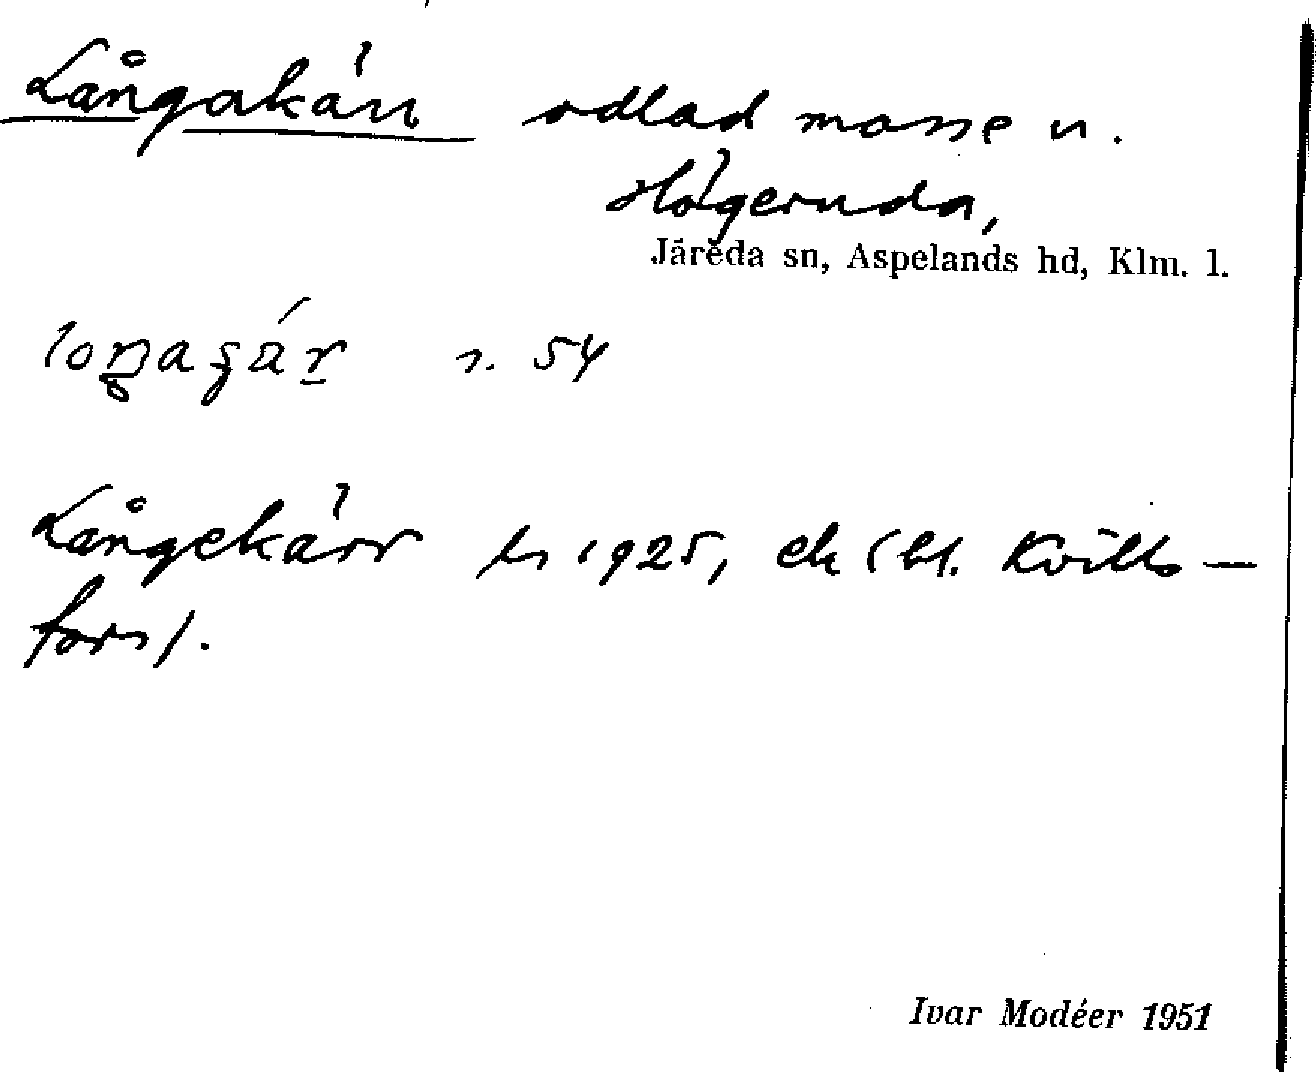 Långakärr odlad mosse u.
Högeruda,
Järeda sn, Aspelands hd, Klm. l.
s. 54
Långekärr ks 1925, ek (bl. Kvills-
fors).
Ivar Modéer 1951